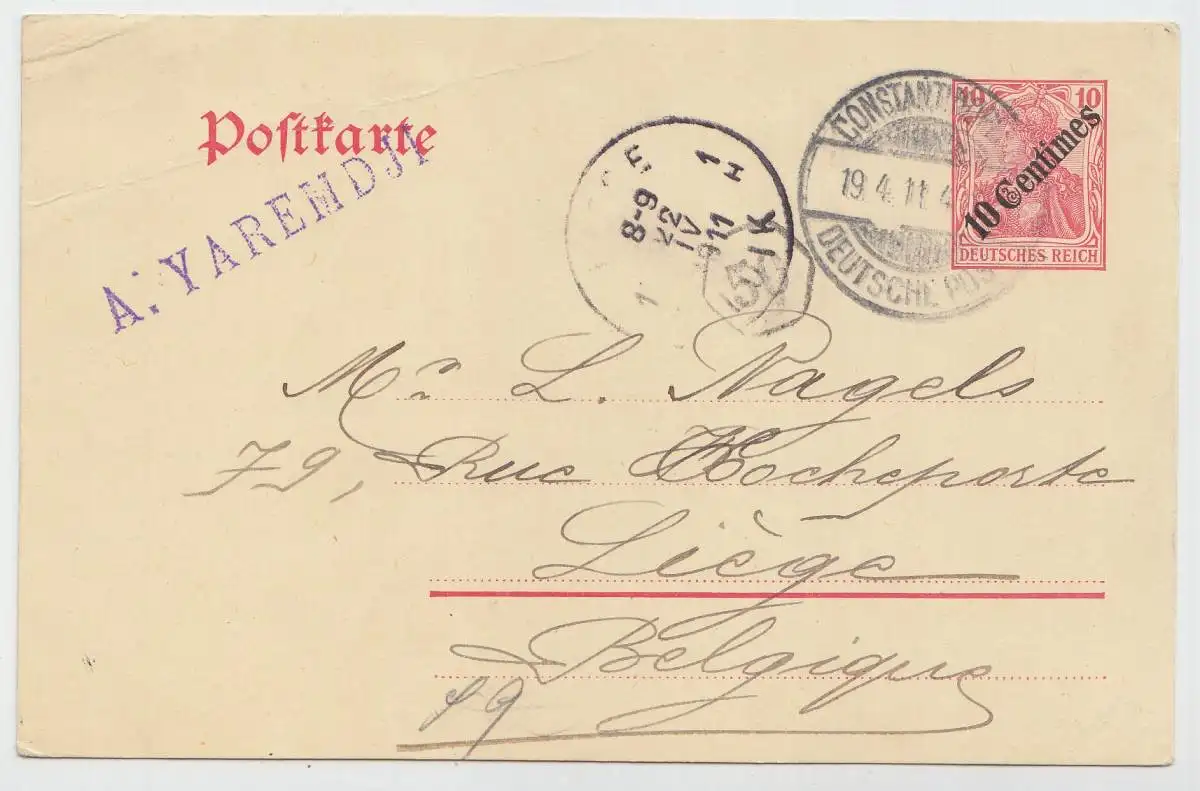 Postkarte
A. YAREMDJI
8-9
22
IV
1911
1
H
1
LUIK
55
CONSTANTINOPEL
19.4.11. 4
DEUTSCHE POST
10 10
10 Centimes
DEUTSCHES REICH
Mr. L. Nagels
79, Rue Hocheporte
Liège
Belgique